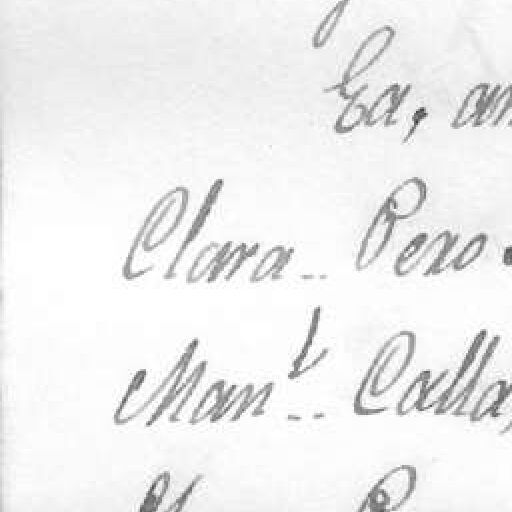 Ea, an
Clara.. Pero.
Man.l.. Calla,